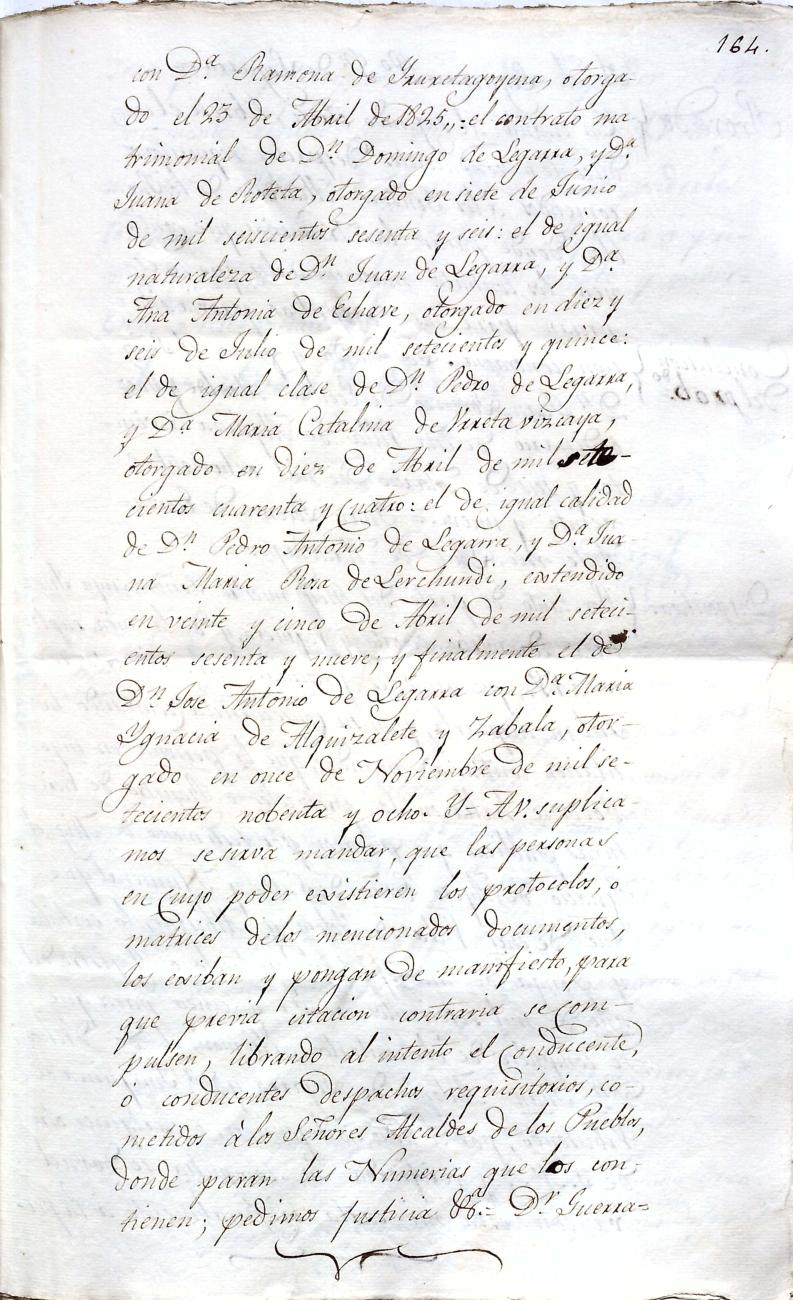 164.
con D.ª Ramona de Yruretagoyena, otorga-
do el 23 de Abril de 1825,,: el contrato ma
trimonial de D.ⁿ Domingo de Legarra, y D.ª
Juana de Roteta, otorgado en siete de Junio
de mil seiscientos sesenta y seis: el de igual
naturaleza de D.ⁿ Juan de Legarra, y D.ª
Ana Antonia de Echave, otorgado en diez y
seis de Julio de mil setecientos y quince:
el de igual clase de D.ⁿ Pedro de Legarra,
y D.ª Maria Catalina de Urreta vizcaya,
otorgado en diez de Abril de mil sete-
cientos cuarenta y cuatro: el de igual calidad
de D.ⁿ Pedro Antonio de Legarra, y D.ª Jua-
na Maria Rosa de Lerchundi, extendido
en veinte y cinco de Abril de mil seteci-
entos sesenta y nueve; y finalmente el de
D.ⁿ Jose Antonio de Legarra con D.ª Maria
Ygnacia de Alquizalete y Zabala, otor-
gado en once de Noviembre de mil se-
tecientos nobenta y ocho. Y= A V. suplica-
mos se sirva mandar, que las personas
en cuyo poder existieren los protocolos, o
matrices de los mencionados documentos,
los exiban y pongan de manifiesto, para
que previa citacion contraria se com-
pulsen, librando al intento el conducente,
ó conducentes despachos requisitorios, co-
metidos á los Señores Alcaldes de los Pueblos,
donde paran las Numerias que los con-
tienen; pedimos justicia &ª.= D.ʳ Guerra=